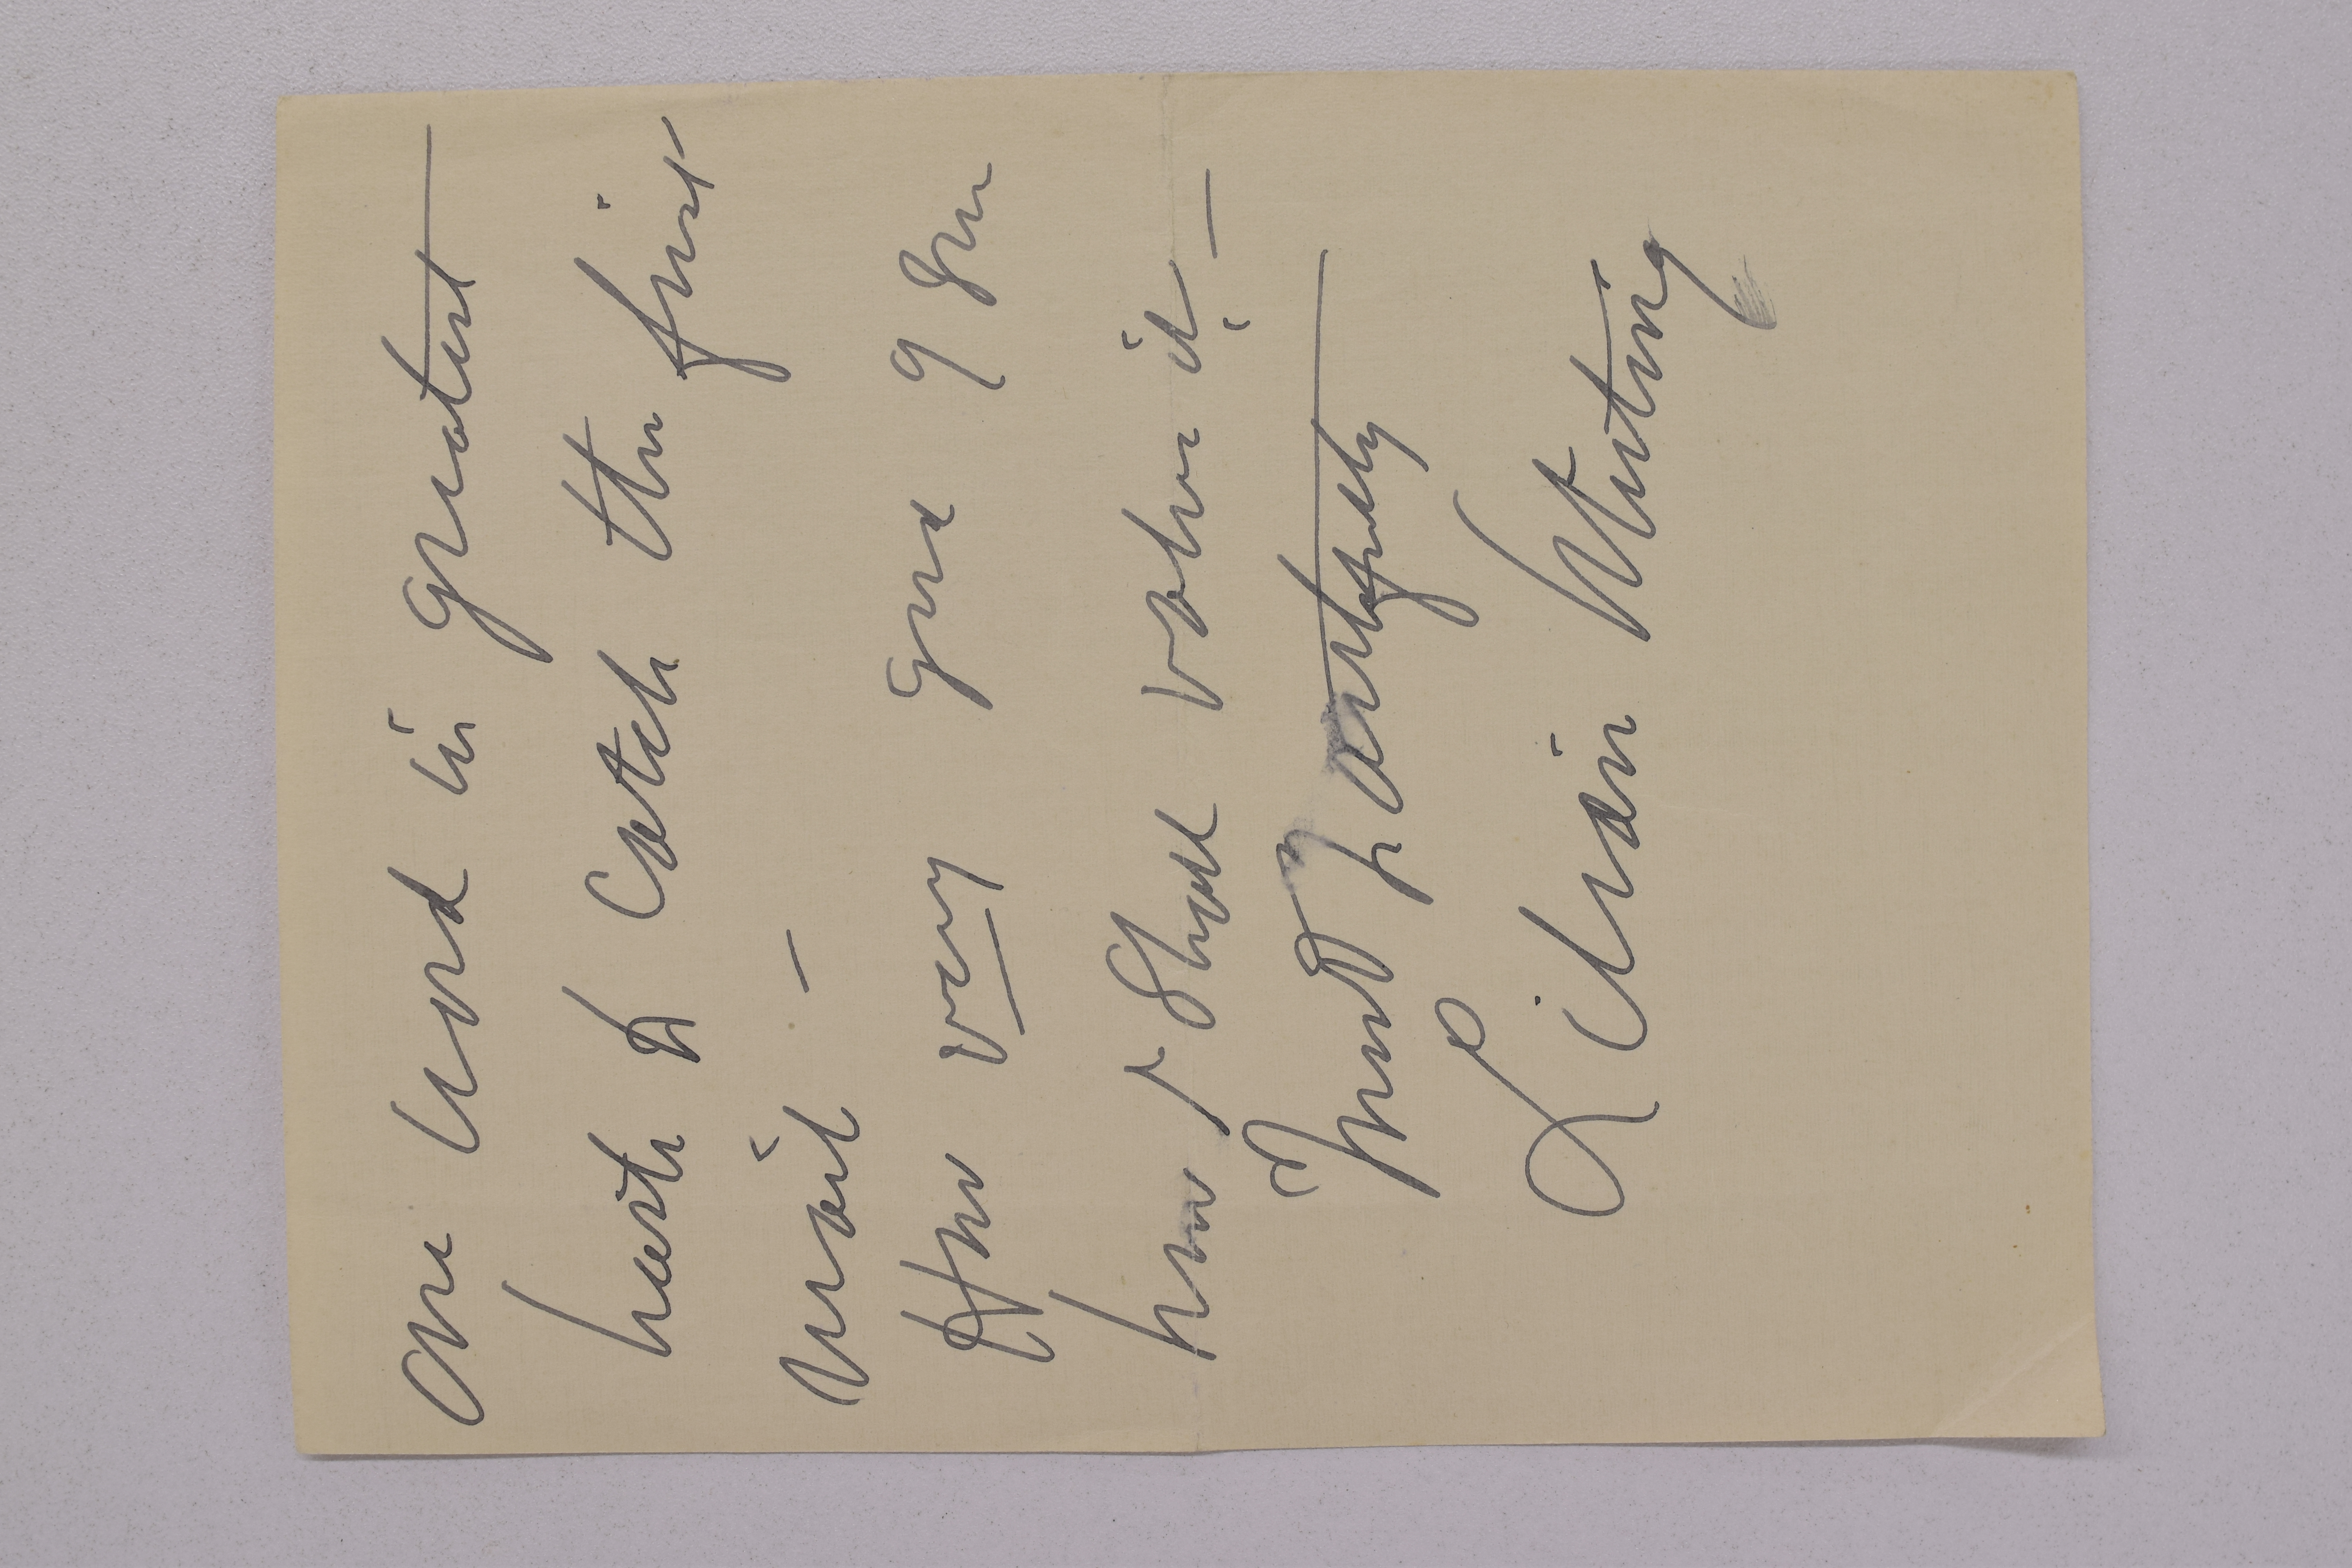 one word in greatest
haste to catch the first
mail —
How very good of you
how I shall value it —
Most heartfully
Lilian Whiting